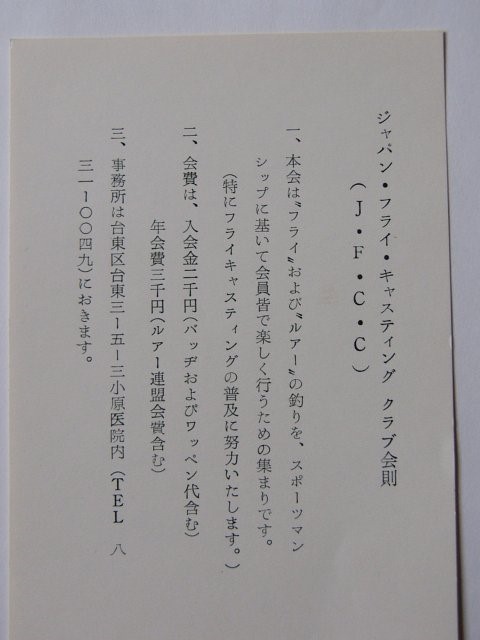 ジャパン・フライ・キャスティング クラブ会則
（J・F・C・C）
一、本会は〝フライ〟および〝ルアー〟の釣りを、スポーツマン
シップに基いて会員皆で楽しく行うための集まりです。
（特にフライキャスティングの普及に努力いたします。）
二、会費は、入会金二千円（バッヂおよびワッペン代含む）
年会費三千円（ルアー連盟会費含む）
三、事務所は台東区台東三ー五ー三小原医院内（TEL 八
三一ー〇〇四九）におきます。